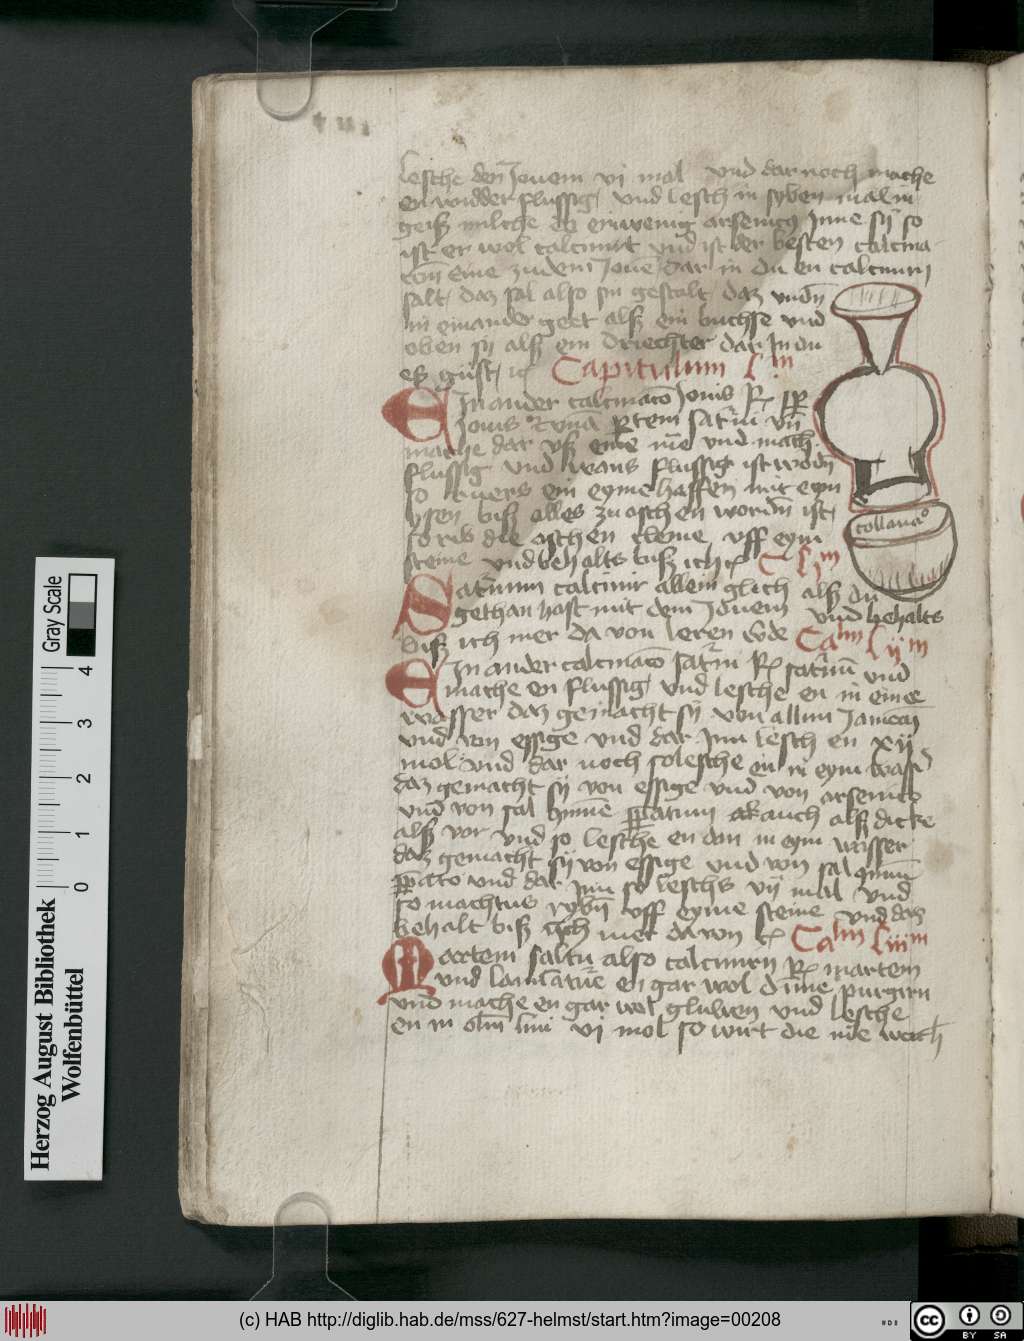 lesche den Jouem vi mol vnd dar noch mache
en widder flussig / vnd lesch in syben mal in
geiß milche en ein wenig arsenicy Inne sy so
ist er wol calciniirt vnd ist der besten calcina
Eine zudem Jouē dar in du en calcinirn
salt / daz sal also sin gestalt / daz vndn̄
in einander geet alß ein buchse vnd
oben sy alß ein driechter dar In du
eß gust /
Capitulum L m
EIn ander calcinacō Jouis ꝶ
Jouis vnā ꝑtem saturni vn̄
mache dar vß eine vnd mach
flussig vnd wans flussig ist wordn̄
so ruers ein eyme haffen mit eym
ysen biß alles zu aschen wordn̄ ist /
so rib die aschen cleine vff eym
steine vnd behalts biß ich
Saturnum calcinir allein glich alß du
gethan hast mit dem Jouem vnd behalts
biß ich mer da von leren
Cam Lij m
EIn ander calcinacō saturni ꝶ saturnū vnd
mache en flussig / vnd lesche en in eime
wasser daz gemacht sy von allun Jameni
vnd von essige vnd dar Inn lesch en xij
mol vnd dar noch so lesche en in eym wasser
daz gemacht sy von essige vnd von arsenico
vnd von sal ꝑatum auch alß dicke
alß vor vnd so lesche en dan in eym wasser
daz gemacht sy von essige vnd von sal
ꝑato vnd dar Inn so leschs vij mal vnd
so machtus rybn̄ vff eyme steine vnd daz
behalt biß ich mer da von
Cam Liii m
Martem saltu also calcinirn ꝶ martem
vnd laminatum en gar wol purgirn
vnd mache en gar wol gluwen vnd lesche
en in olm lini vi mol so wirt die wech
collana
Herzog August Bibliothek
Wolfenbüttel
0 1 2 3 4
Gray Scale
(c) HAB http://diglib.hab.de/mss/627-helmst/start.htm?image=00208
cc BY SA